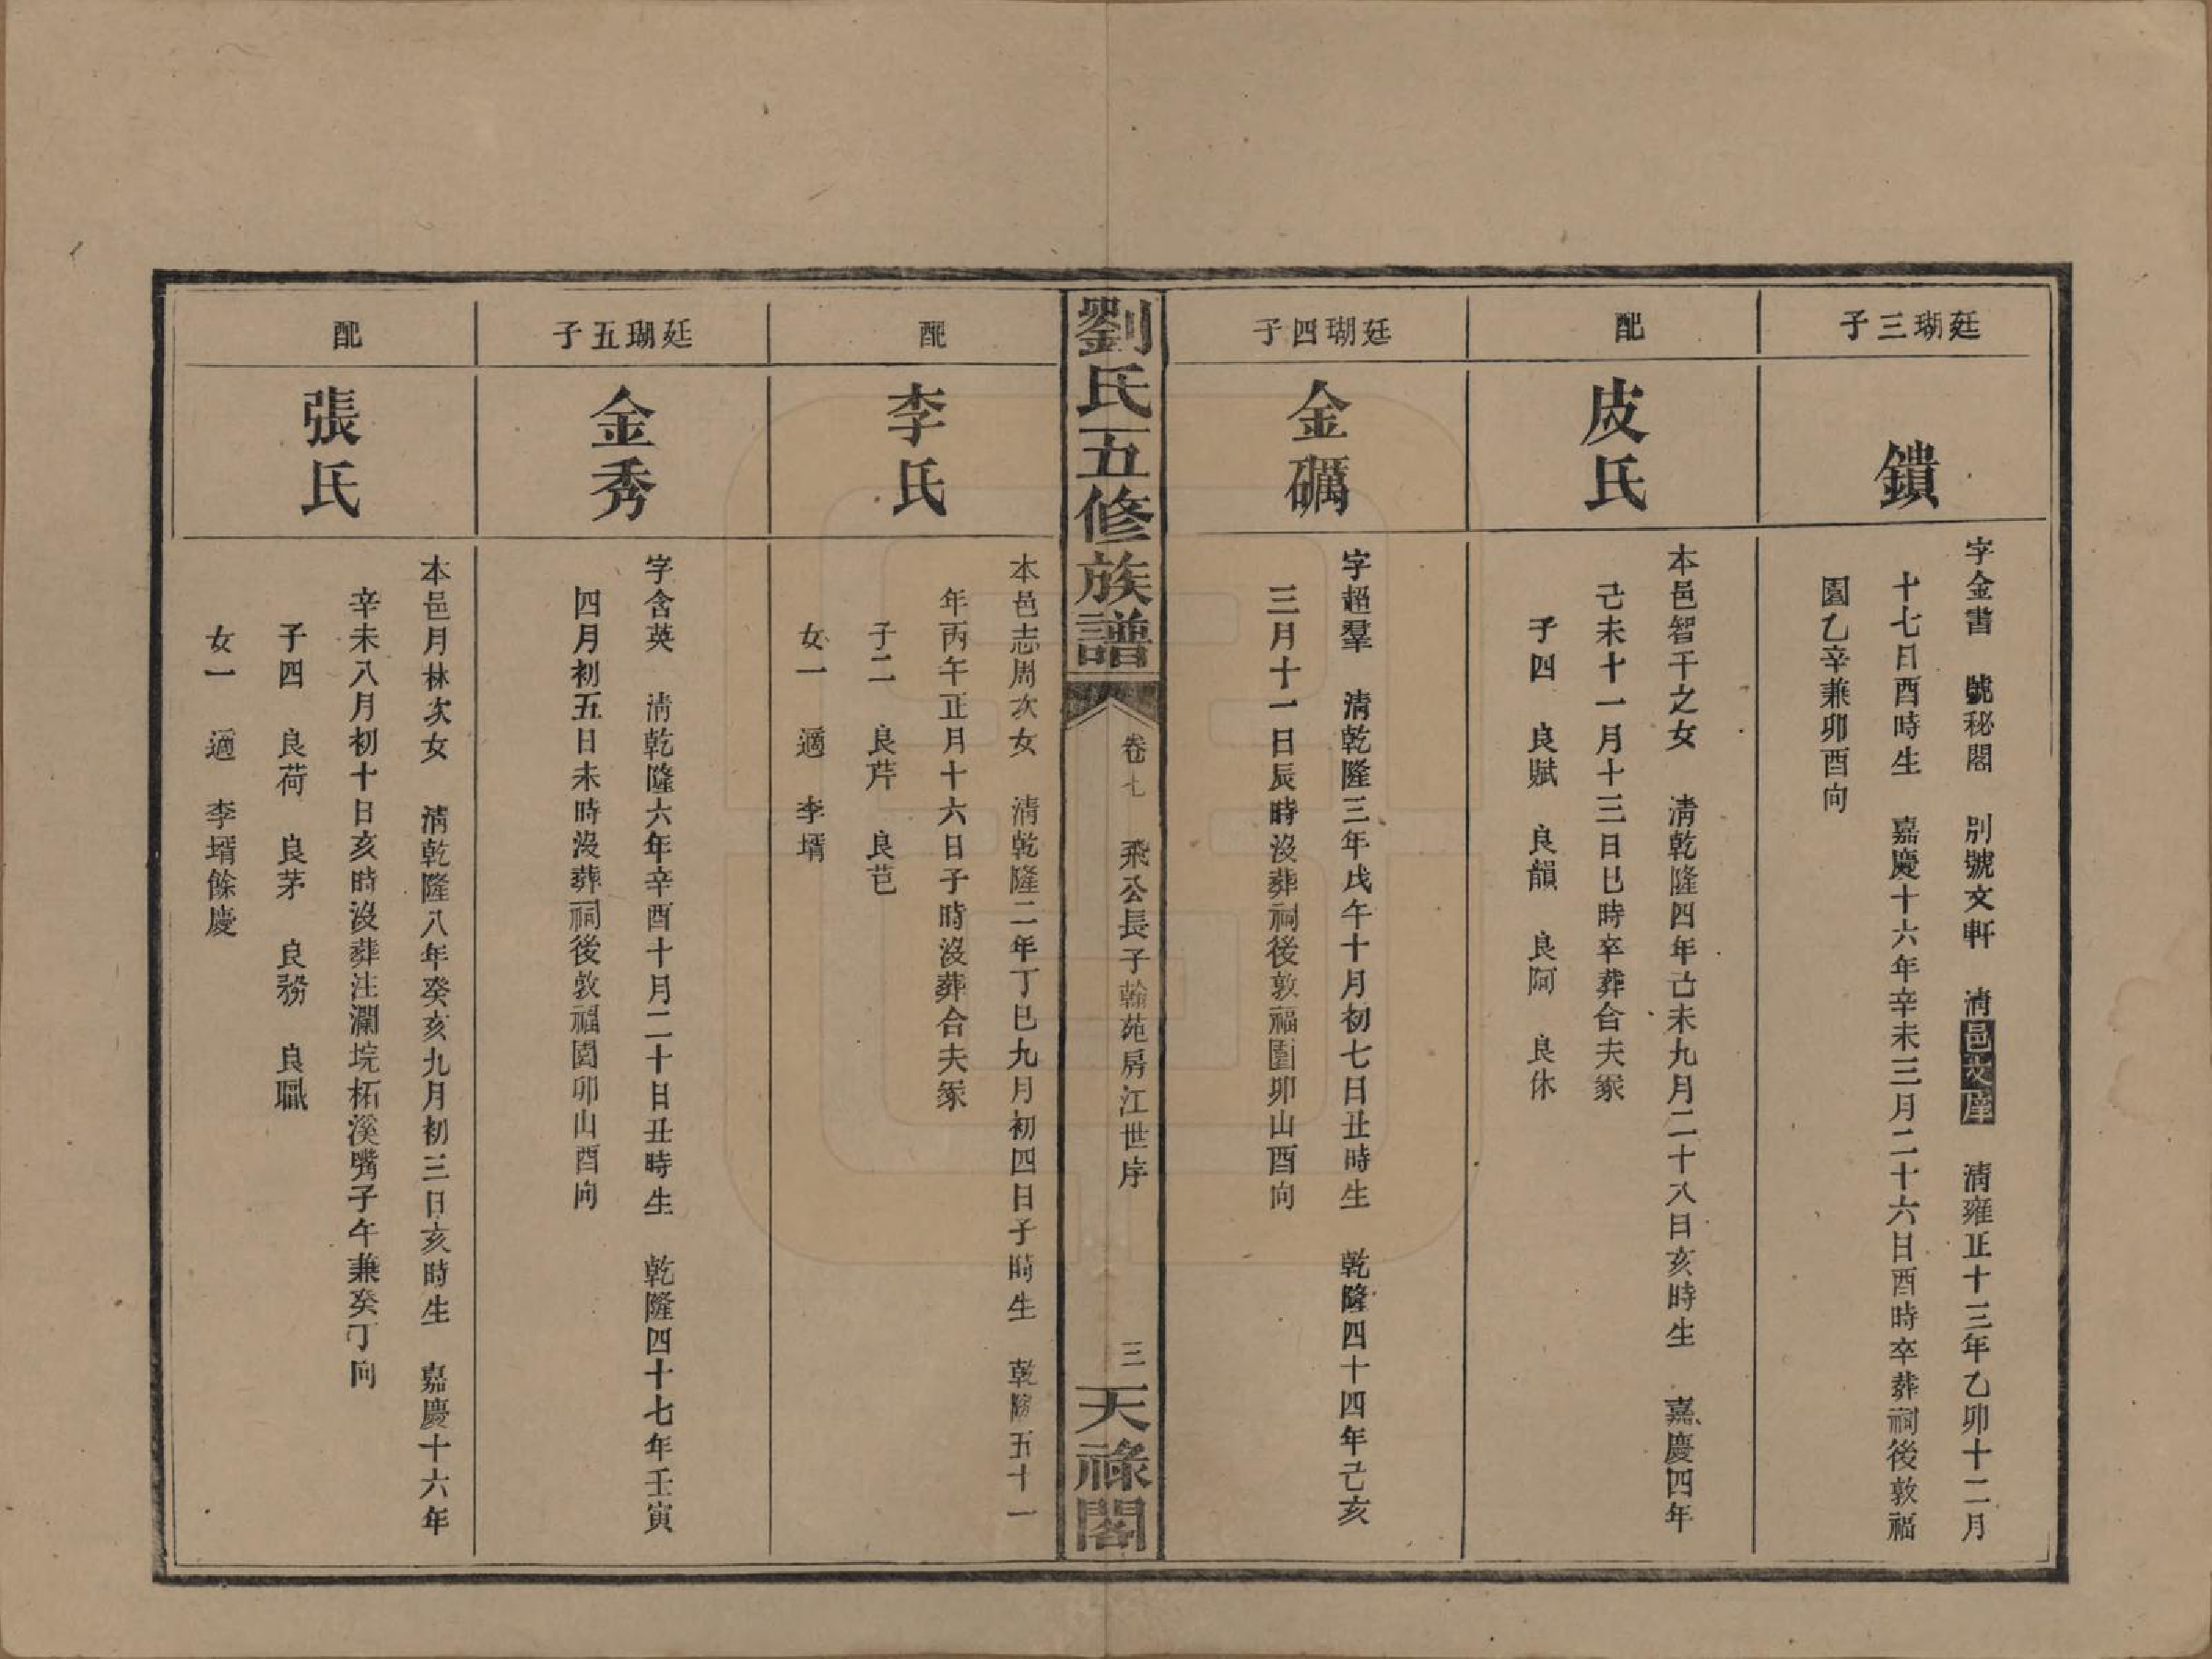 廷瑚三子
鐀
字金書　號秘閣　別號文軒　清邑文庠　清雍正十三年乙卯十二月
十七日酉時生　嘉慶十六年辛未三月二十六日酉時卒葬祠後敦福
園乙辛兼卯酉向
配
皮氏
本邑智干之女　清乾隆四年己未九月二十八日亥時生　嘉慶四年
己未十一月十三日巳時卒葬合夫冢
子四　良賦　良韻　良阿　良休
廷瑚四子
金礪
字超羣　清乾隆三年戊午十月初七日丑時生　乾隆四十四年己亥
三月十一日辰時沒葬祠後敦福園卯山酉向
劉氏五修族譜
卷七　飛公長子翰苑房江世序
三
天祿閣
配
李氏
本邑志周次女　清乾隆二年丁巳九月初四日子時生　乾隆五十一
年丙午正月十六日子時沒葬合夫冢
子二　良芹　良芑
女一　適　李壻
廷瑚五子
金秀
字含英　清乾隆六年辛酉十月二十日丑時生　乾隆四十七年壬寅
四月初五日未時沒葬祠後敦福園卯山酉向
配
張氏
本邑月林次女　清乾隆八年癸亥九月初三日亥時生　嘉慶十六年
辛未八月初十日亥時沒葬注瀾垸柘溪嘴子午兼癸丁向
子四　良荷　良茅　良務　良職
女一　適　李壻餘慶